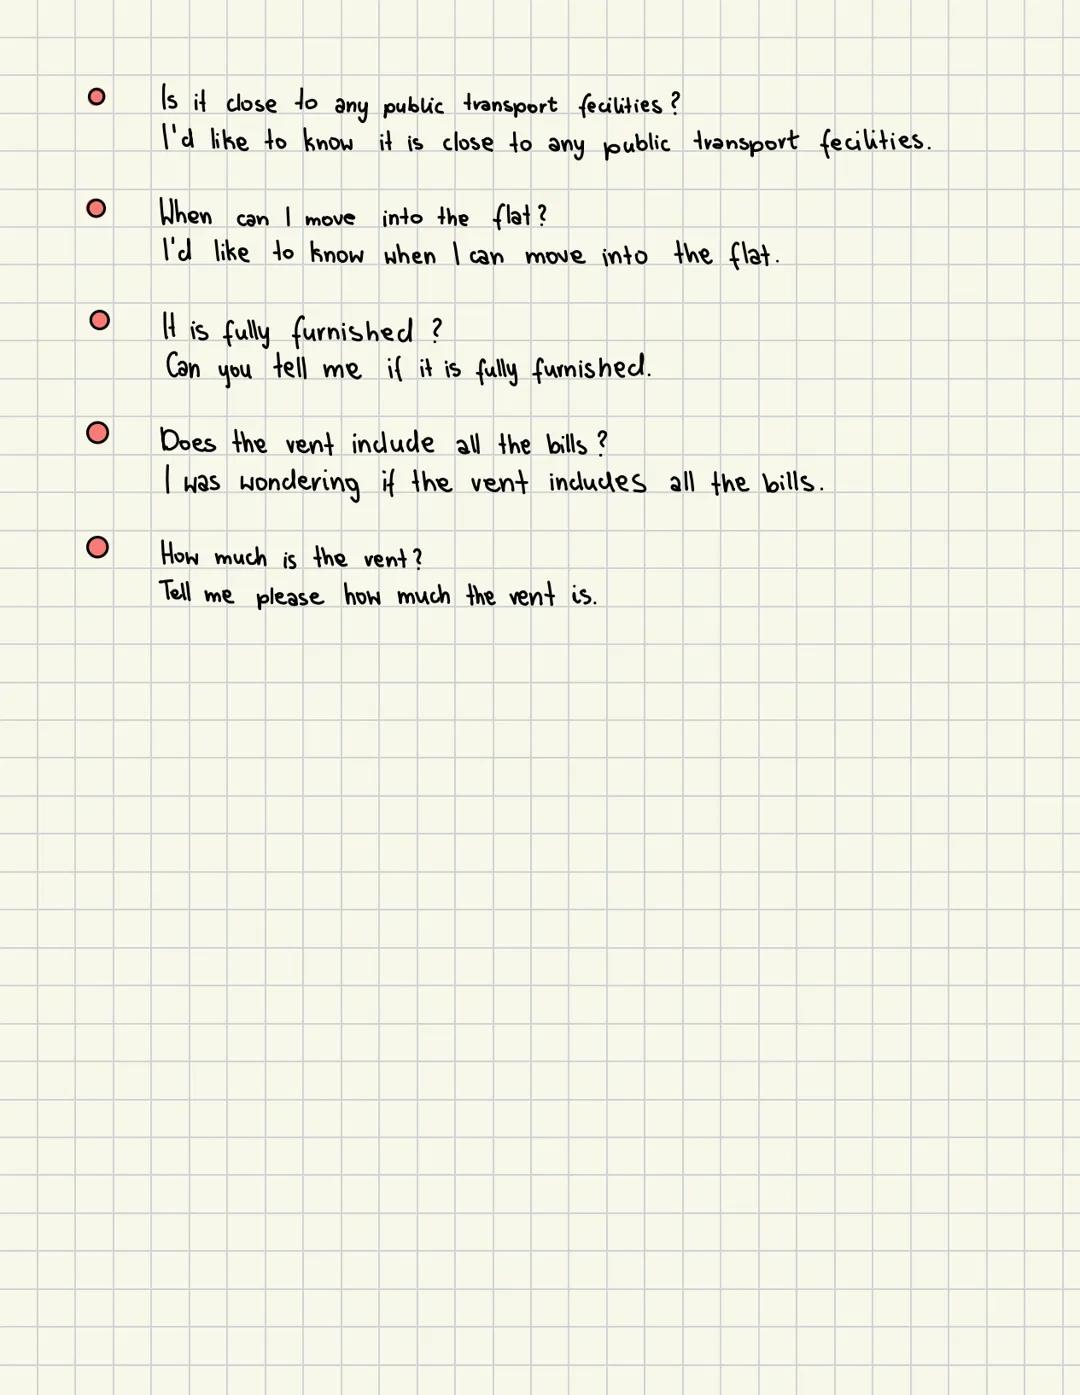 Is it close to any public transport fecilities?
I'd like to know it is close to any public transport fecilities.
When can I move into the flat?
I'd like to know when I can move into the flat.
It is fully furnished?
Can you tell me if it is fully furnished.
Does the rent include all the bills?
I was wondering if the rent includes all the bills.
How much is the rent?
Tell me please how much the rent is.